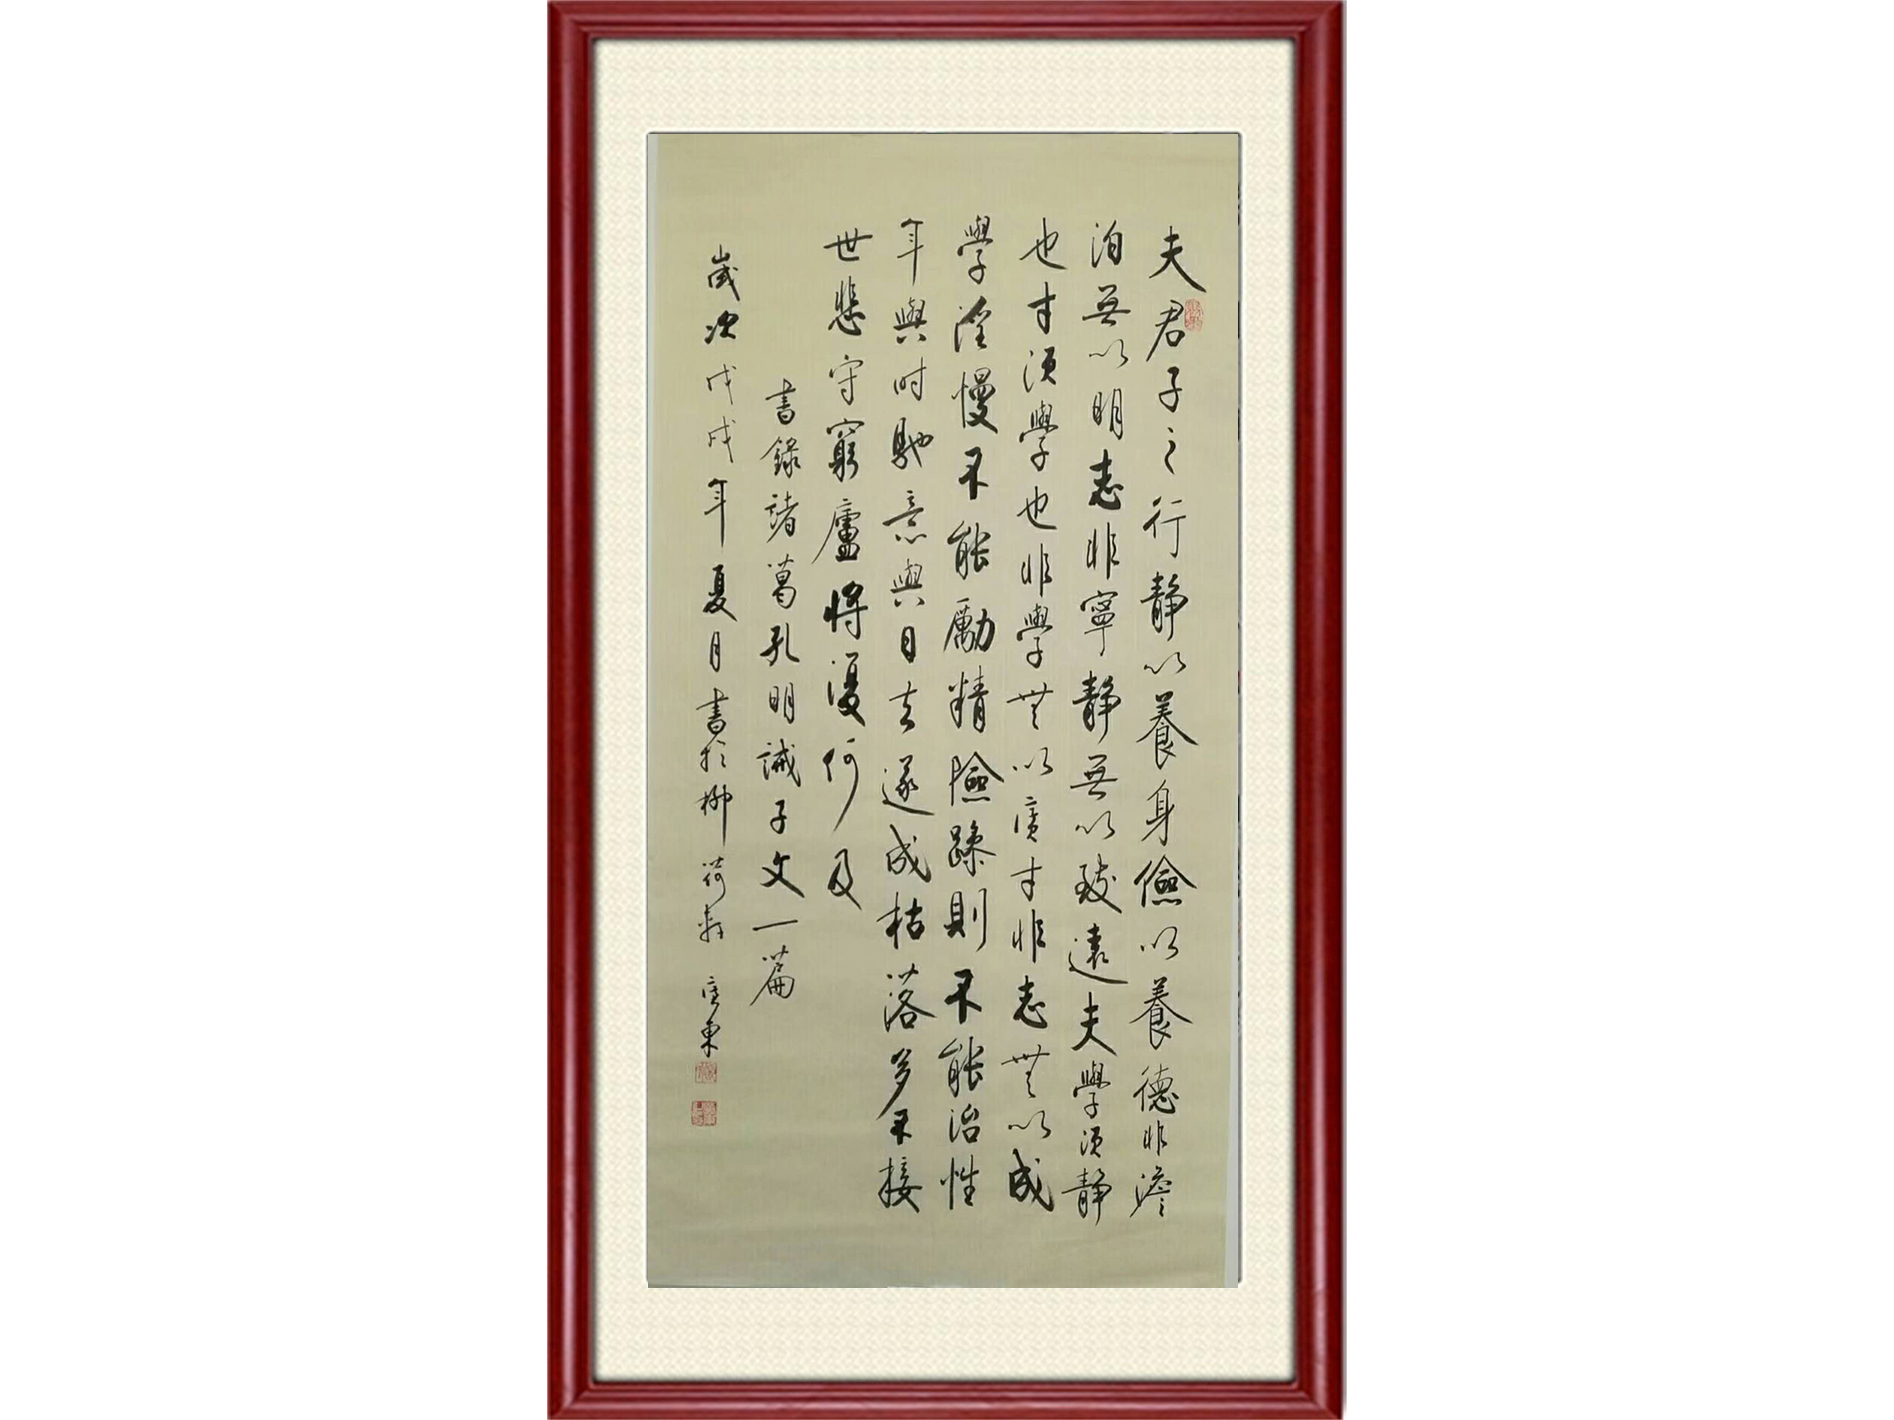 夫君子之行静以養身儉以養德非澹
泊無以明志非寧靜無以致遠夫學須靜
也才須學也非學無以廣才非志無以成
學淫慢不能勵精險躁則不能治性
年與时馳意與日去遂成枯落多不接
世悲守窮廬將復何及
書錄諸葛孔明誡子文一篇
歲次戊戌年夏月書於柳荷軒